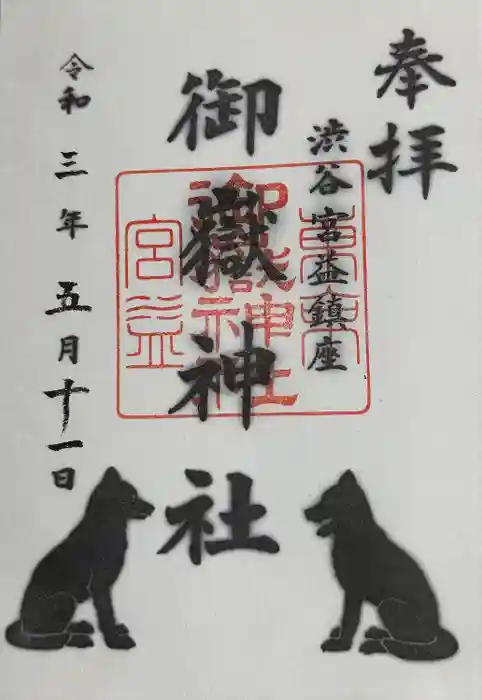 奉拝
渋谷宮益鎮座
御嶽神社
令和三年五月十一日
東京
宮益
御嶽神社